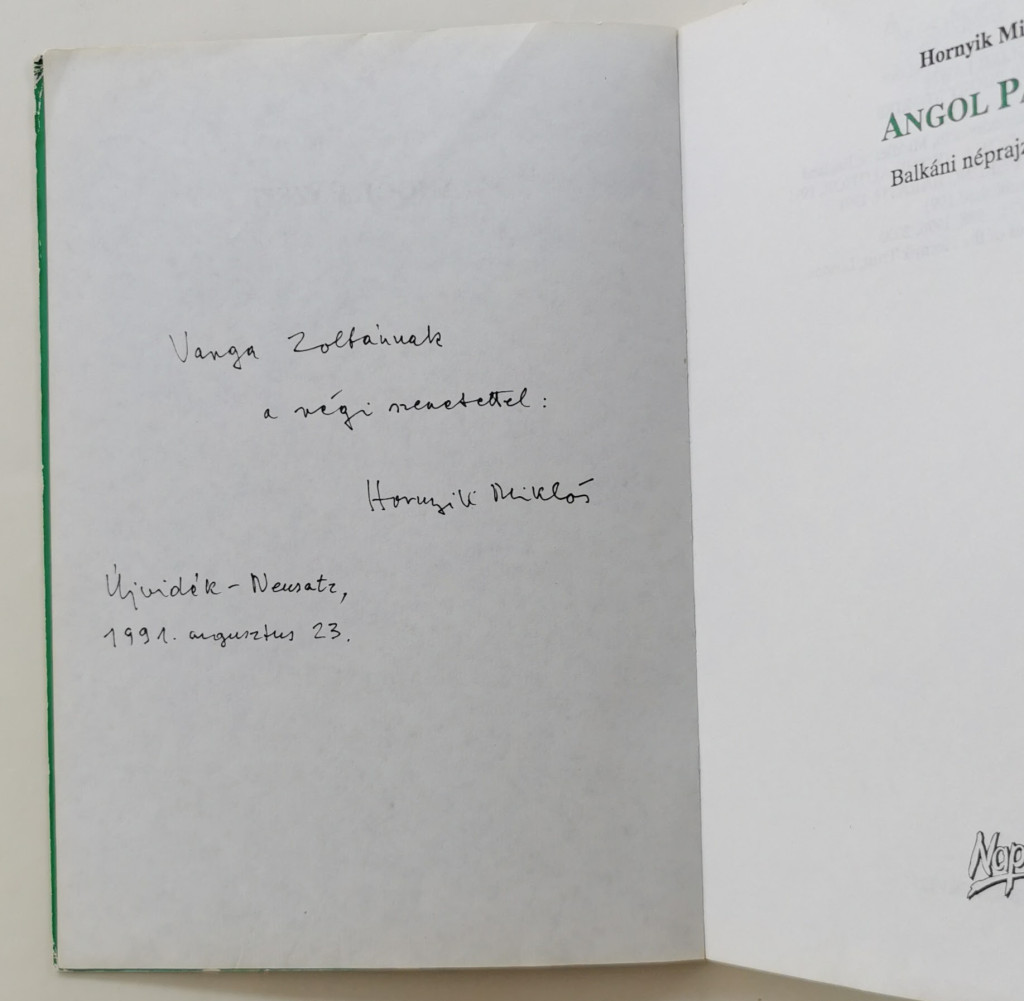 Vanga Zoltánnak
a régi szeretettel:
Hornyik Miklós
Újvidék – Neusatz,
1991. augusztus 23.
Hornyik Mi
ANGOL PA
Balkáni néprajz
Nap